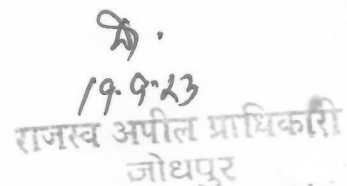 19.9.23
राजस्व अपील प्राधिकारी
जोधपुर